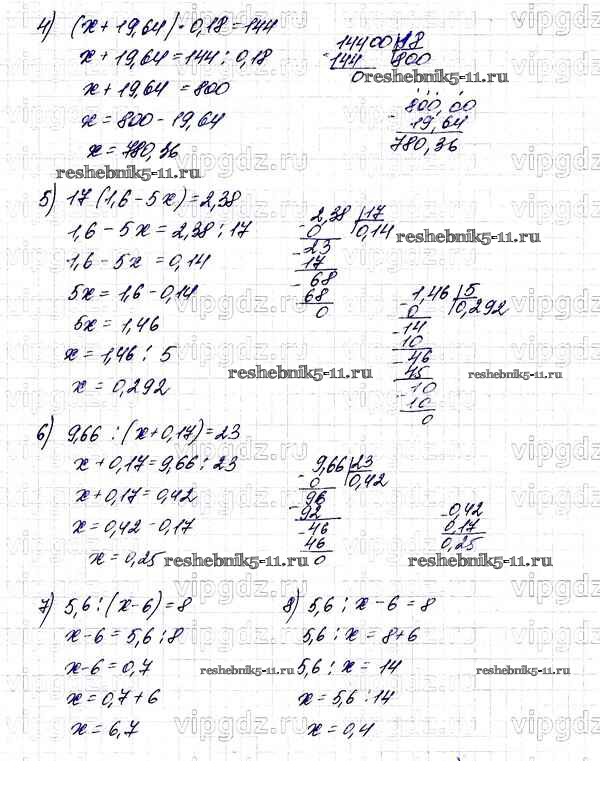 4) (x + 19,64) · 0,18 = 144
x + 19,64 = 144 : 0,18
x + 19,64 = 800
x = 800 - 19,64
x = 780,36
14400 | 18
- 144 | 800
0
800,00
- 19,64
780,36
5) 17 (1,6 - 5x) = 2,38
1,6 - 5x = 2,38 : 17
1,6 - 5x = 0,14
5x = 1,6 - 0,14
5x = 1,46
x = 1,46 : 5
x = 0,292
- 2,38 | 17
0 | 0,14
- 23
17
- 68
68
0
- 1,46 | 5
0 | 0,292
- 14
10
- 46
45
- 10
10
0
6) 9,66 : (x + 0,17) = 23
x + 0,17 = 9,66 : 23
x + 0,17 = 0,42
x = 0,42 - 0,17
x = 0,25
- 9,66 | 23
0 | 0,42
- 96
92
- 46
46
0
- 0,42
0,17
0,25
7) 5,6 : (x - 6) = 8
x - 6 = 5,6 : 8
x - 6 = 0,7
x = 0,7 + 6
x = 6,7
8) 5,6 : x - 6 = 8
5,6 : x = 8 + 6
5,6 : x = 14
x = 5,6 : 14
x = 0,4
reshebnik5-11.ru
reshebnik5-11.ru
reshebnik5-11.ru
reshebnik5-11.ru
reshebnik5-11.ru
reshebnik5-11.ru
reshebnik5-11.ru
reshebnik5-11.ru
reshebnik5-11.ru
vipgdz.ru